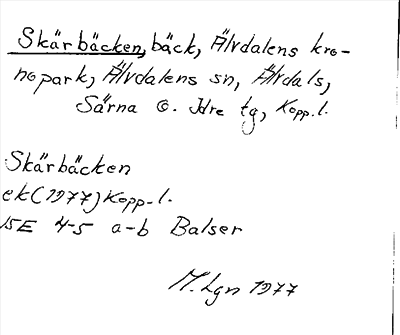 Skärbäcken, bäck, Älvdalens kro-
nopark, Älvdalens sn, Älvdals,
Särna o. Idre tg, Kopp.l.
Skärbäcken
ek (1977) Kopp.l.
15E 4-5 a-b Balser
M.Lgn 1977